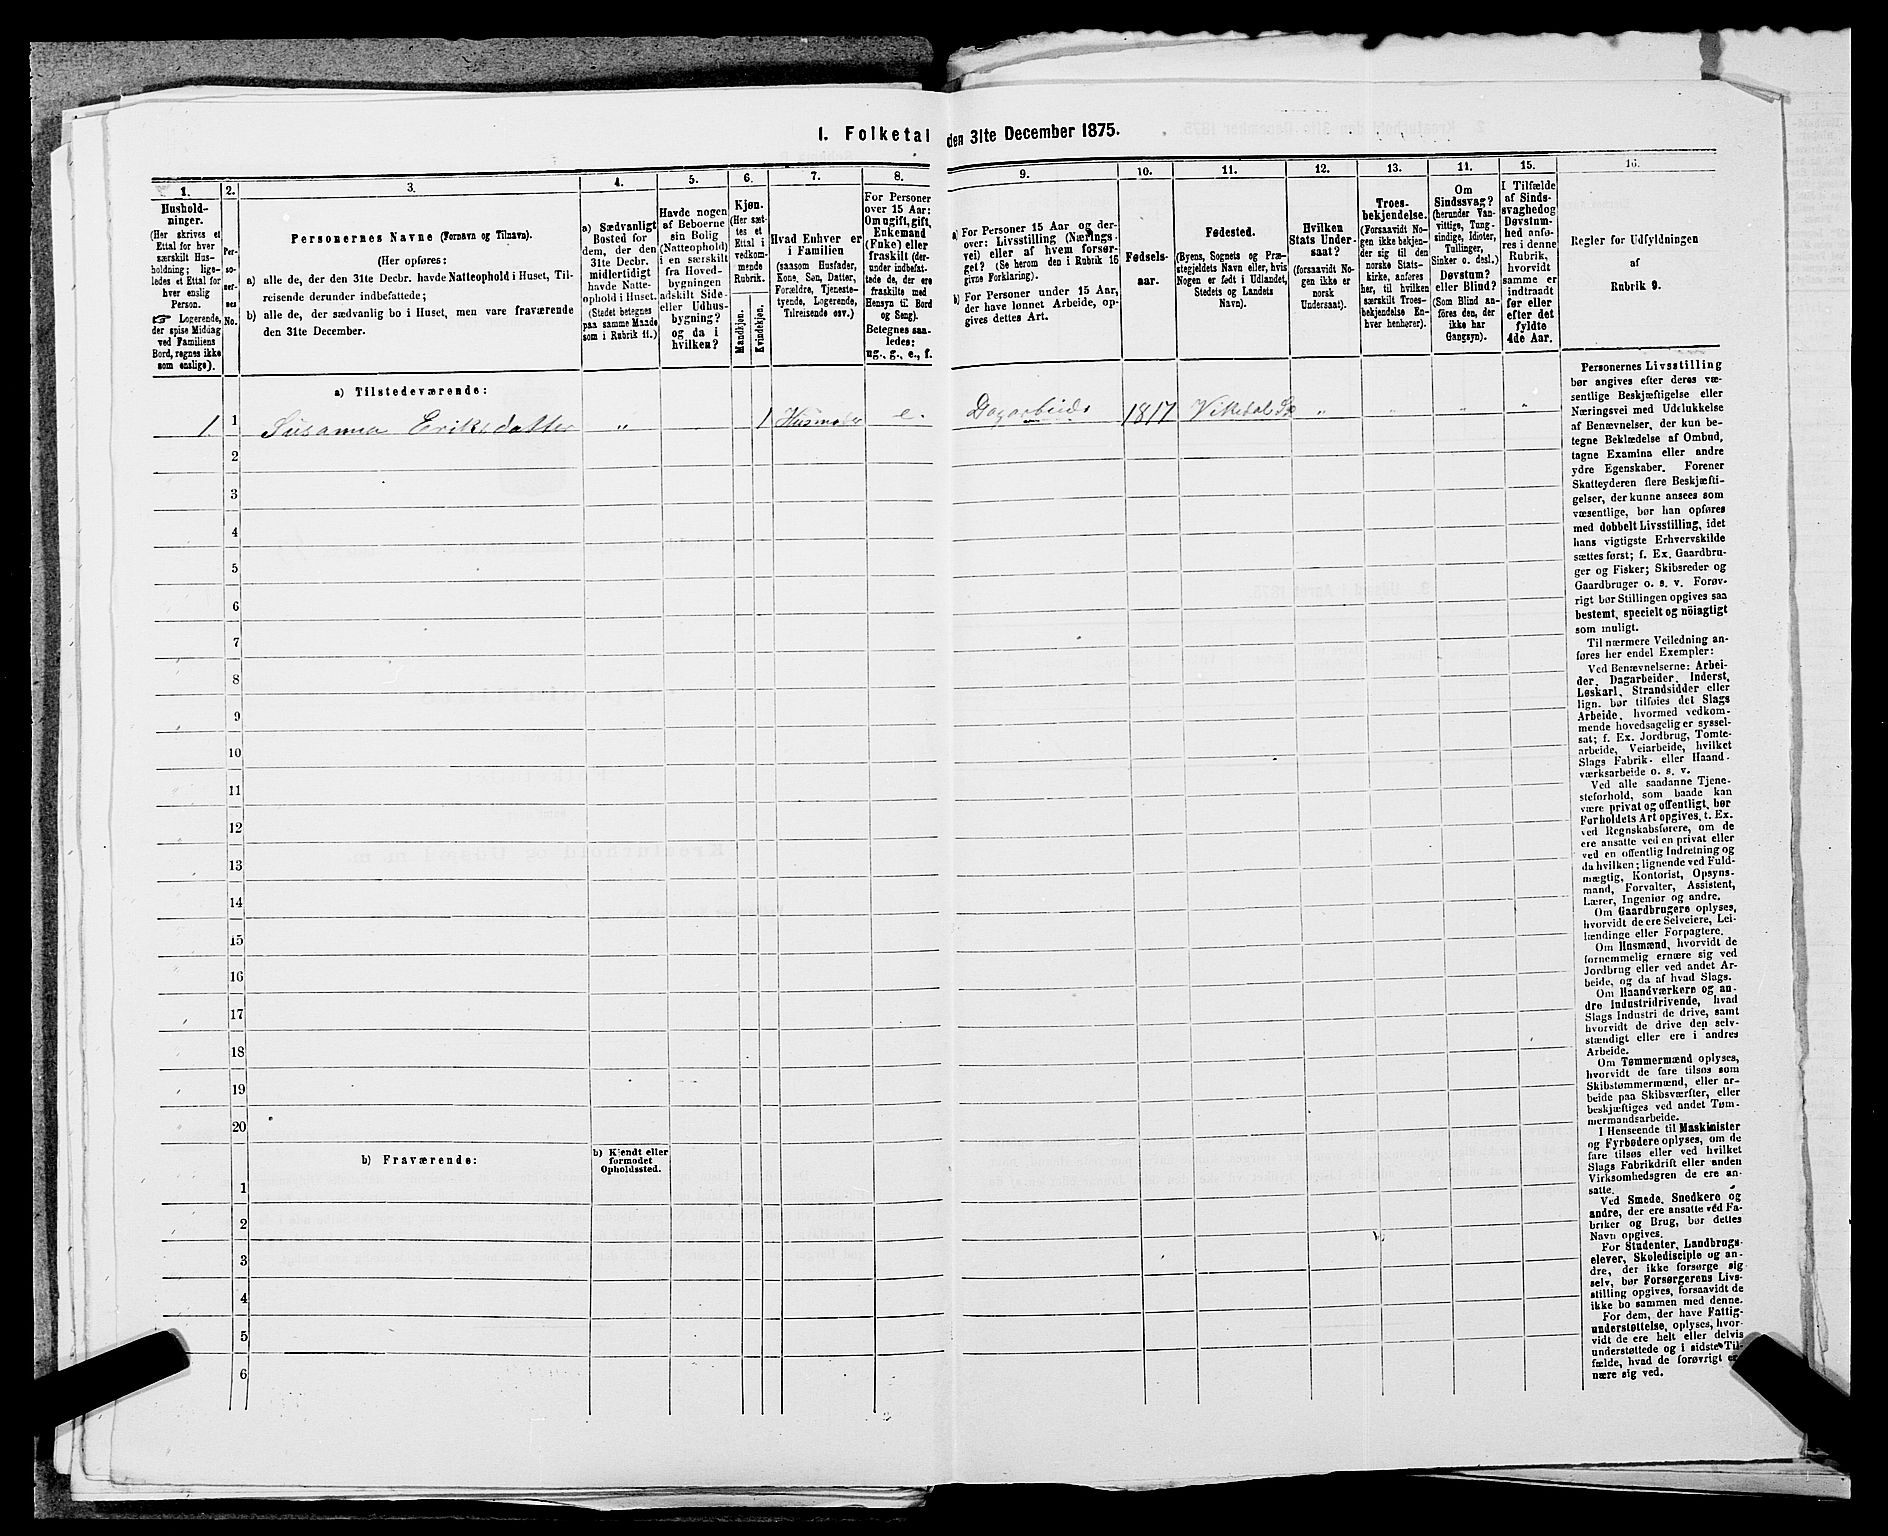 I. Folketal den 31te December 1875.
1.
Hushold-
ninger.
(Her skrives et
Ettal for hver
særskilt Hus-
holdning; lige-
ledes et Ettal for
hver enslig
Person.
☞ Logerende,
der spise Middag
ved Familiens
Bord, regnes ikke
som enslige).
2.
Per-
so-
ner-
nes
No.
3.
Personernes Navne (Fornavn og Tilnavn).
(Her opføres:
a) alle de, der den 31te Decbr. havde Natteophold i Huset, Til-
reisende derunder indbefattede;
b) alle de, der sædvanlig bo i Huset, men vare fraværende
den 31te December.
4.
a) Sædvanligt
Bosted for
dem, der den
31te Decbr.
midlertidigt
havde Natte-
ophold i Huset.
(Stedet betegnes
paa samme Maade
som i Rubrik 11.)
5.
Havde nogen
af Beboerne
sin Bolig
(Natteophold)
i en særskilt
fra Hoved-
bygningen
adskilt Side-
eller Udhus-
bygning?
og da i
hvilken?
6.
Kjøn.
(Her sæt-
tes et
Ettal i
vedkom-
mende
Rubrik.
Mandkjøn.
Kvindekjøn.
7.
Hvad Enhver er
i Familien
(saasom Husfader,
Kone, Søn, Datter,
Forældre, Tjeneste-
tyende, Logerende,
Tilreisende osv.)
8.
For Personer
over 15 Aar:
Om ugift, gift,
Enkemand
(Enke) eller
fraskilt (der-
under indbefat-
tede de, der ere
fraskilte med
Hensyn til Bord
og Seng).
Betegnes saa-
ledes:
ug., g., e., f.
9.
a) For Personer 15 Aar og der-
over: Livsstilling (Nærings-
vei) eller af hvem forsør-
get? (Se herom den i Rubrik 16
givne Forklaring).
b) For Personer under 15 Aar,
der have lønnet Arbeide, op-
gives dettes Art.
10.
Fødsels-
aar.
11.
Fødested.
(Byens, Sognets og Præ-
stegjeldets Navn eller, hvis
Nogen er født i Udlandet,
Stedets og Landets
Navn).
12.
Hvilken
Stats Under-
saat?
(forsaavidt No-
gen ikke er
norsk
Undersaat).
13.
Troes-
bekjendelse.
(Forsaavidt Nogen
ikke bekjen-
der sig til den
norske Stats-
kirke, anføres
her, til hvilken
særskilt Troes-
bekjendelse En-
hver henhører).
14.
Om
Sindssvag?
(herunder Van-
vittige, Tung-
sindige, Idioter,
Tullinger,
Sinker o. desl.)
Døvstum?
eller Blind?
(Som Blind an-
føres den, der
ikke har
Gangsyn).
15.
I Tilfælde
af Sinds-
svaghed og
Døvstum-
hed anfø-
res i denne
Rubrik,
hvorvidt
samme er
indtraadt
før eller
efter det
fyldte
4de Aar.
16.
Regler for Udfyldningen
af
Rubrik 9.
a) Tilstedeværende:
1. 1 Susanna Eriksdatter " 1 Husmoder e. Dagarbeide 1817 " " " "
2
3
4
5
6
7
8
9
10
11
12
13
14
15
16
17
18
19
20
b) Fraværende:
b) Kjendt eller
formodet
Opholdssted.
1
2
3
4
5
6
Personernes Livsstilling
bør angives efter deres væ-
sentlige Beskjæftigelse eller
Næringsvei med Udelukkelse
af Benævnelser, der kun be-
tegne Beklædelse af Ombud,
tagne Examina eller andre
ydre Egenskaber. Forener
Skatteyderen flere Beskjæfti-
gelser, der kunne ansees som
væsentlige, bør han opføres
med dobbelt Livsstilling, idet
hans vigtigste Erhvervskilde
sættes først; f. Ex. Gaardbru-
ger og Fisker; Skibsreder og
Gaardbruger o. s. v. Forøv-
rigt bør Stillingen opgives saa
bestemt, specielt og nöiagtigt
som muligt.
Til nærmere Veiledning an-
føres her endel Exempler:
Ved Benævnelserne: Arbei-
der, Dagarbeider, Inderst,
Løskarl, Strandsidder eller
lign. bør tilføies det Slags
Arbeide, hvormed vedkom-
mende hovedsagelig er syssel-
sat; f. Ex. Jordbrug, Tomte-
arbeide, Veiarbeide, hvilket
Slags Fabrik- eller Haand-
værksarbeide o. s. v.
Ved alle saadanne Tjene-
steforhold, som baade kan
være privat og offentligt, bør
Forholdets Art opgives, t. Ex.
ved Regnskabsførere, om de
ere ansatte ved en privat eller
ved en offentlig Indretning og
da hvilken; lignende ved Fuld-
mægtig, Kontorist, Opsyns-
mand, Forvalter, Assistent,
Lærer, Ingeniør og andre.
Om Gaardbrugere oplyses,
hvorvidt de ere Selveiere, Lei-
lændinge eller Forpagtere.
Om Husmænd, hvorvidt de
fornemmelig ernære sig ved
Jordbrug eller ved andet Ar-
beide, og da af hvad Slags.
Om Haandværkere og an-
dre Industridrivende, hvad
Slags Industri de drive, samt
hvorvidt de drive den selv-
stændigt eller ere i andres
Arbeide.
Om Tømmermænd oplyses,
hvorvidt de fare tilsøs som
Skibstømmermænd, eller ar-
beide paa Skibsværfter, eller
beskjæftiges ved andet Tøm-
mermandsarbeide.
I Henseende til Maskinister
og Fyrbødere oplyses, om de
fare tilsøs eller ved hvilket
Slags Fabrikdrift eller anden
Virksomhedsgren de ere an-
satte.
Ved Smede, Snedkere og
andre, der ere ansatte ved Fa-
briker og Brug, bør dettes
Navn opgives.
For Studenter, Landbrugs-
elever, Skoledisciple og an-
dre, der ikke forsørge sig
selv, bør Forsørgerens Livs-
stilling opgives, forsaavidt de
ikke bo sammen med denne.
For dem, der have Fattig-
understøttelse, oplyses, hvor-
vidt de ere helt eller delvis
understøttede og i sidste Til-
fælde, hvad de forøvrigt er-
nære sig ved.